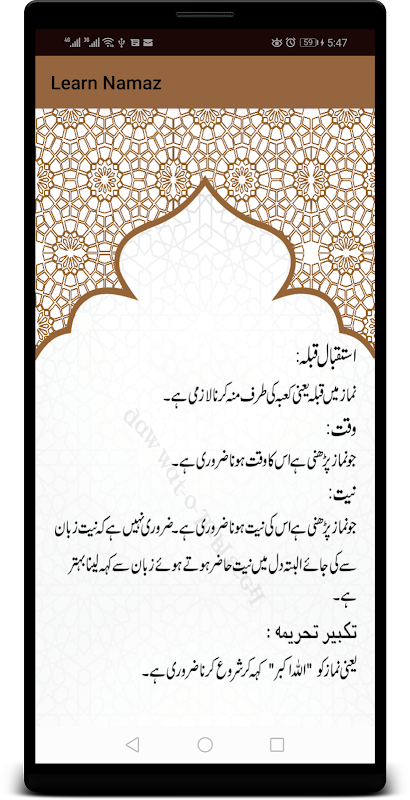 4G 3G 59 5:47
Learn Namaz
استقبال قبلہ:
نماز میں قبلہ یعنی کعبہ کی طرف منہ کرنا لازمی ہے۔
وقت:
جو نماز پڑھنی ہے اس کا وقت ہونا ضروری ہے۔
نیت:
جو نماز پڑھنی ہے اس کی نیت ہونا ضروری ہے۔ ضروری نہیں ہے کہ نیت زبان
سے کی جائے البتہ دل میں نیت حاضر ہوتے ہوئے زبان سے کہہ لینا بہتر
ہے۔
تکبیر تحریمہ :
یعنی نماز کو "اللہ اکبر" کہہ کر شروع کرنا ضروری ہے۔